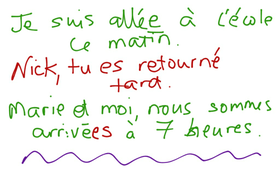 Je suis allée à l'école
ce matin.
Nick, tu es retourné
tard.
Marie et moi, nous sommes
arrivées à 7 heures.